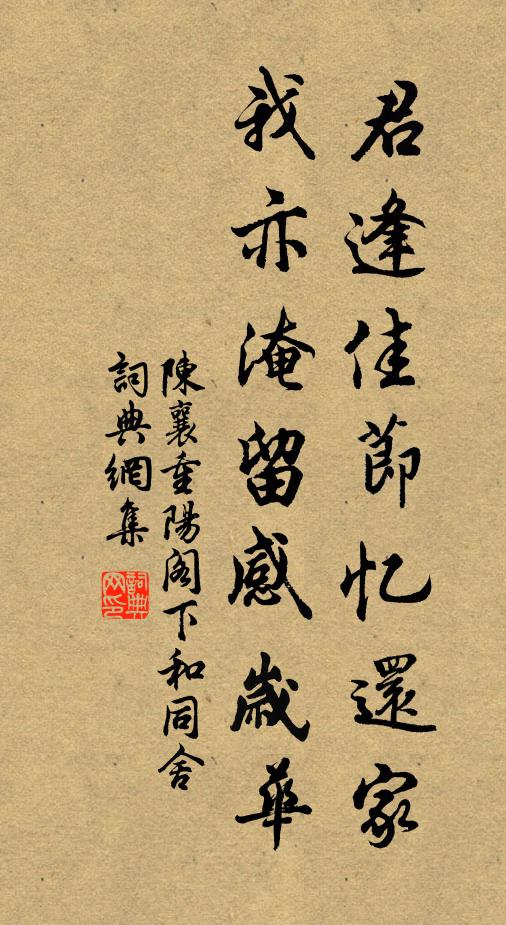 君逢佳節忆還家
我亦淹留感歲華
陳襄重陽阁下和同舍
詞典網集
詞典网印